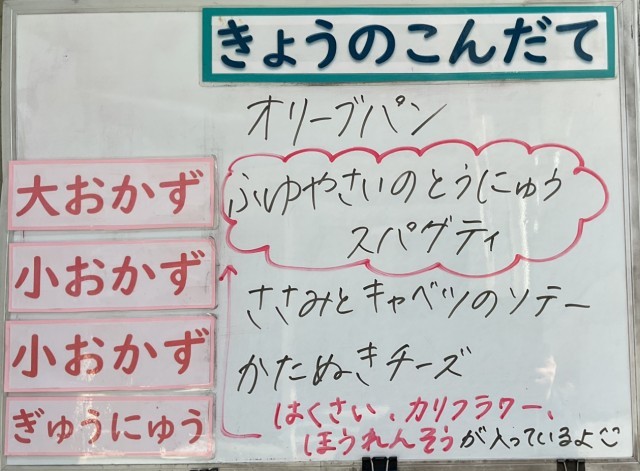 きょうのこんだて
オリーブパン
大おかず
ふゆやさいのとうにゅう
スパゲティ
小おかず
ささみとキャベツのソテー
小おかず
かたぬきチーズ
ぎゅうにゅう
はくさい、カリフラワー、
ほうれんそうが入っているよ